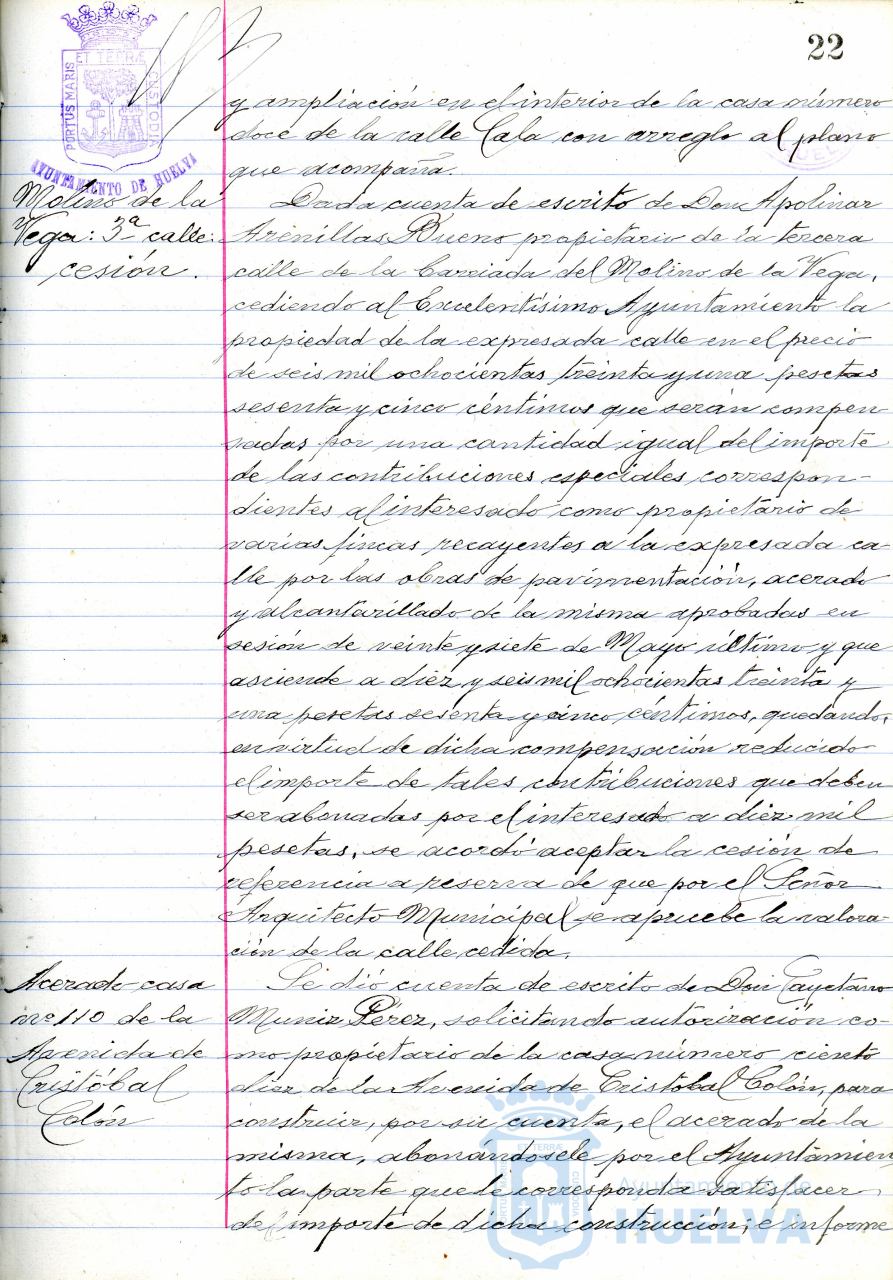 22
PORTUS MARIS
ET TERRÆ
CUSTODIA
AYUNTAMIENTO DE HUELVA
y ampliación en el interior de la casa número
doce de la calle Cala con arreglo al plano
que acompaña.
Molino de la
Vega: 3ª calle:
cesión.
Dada cuenta de escrito de Don Apolinar
Arenillas Bueno propietario de la tercera
calle de la Barriada del Molino de la Vega,
cediendo al Excelentísimo Ayuntamiento la
propiedad de la expresada calle en el precio
de seis mil ochocientas treinta y una pesetas
sesenta y cinco céntimos que serán compen
sadas por una cantidad igual del importe
de las contribuciones especiales correspon-
dientes al interesado como propietario de
varias fincas recayentes a la expresada ca
lle por las obras de pavimentación, acerado
y alcantarillado de la misma aprobadas en
sesión de veinte y siete de Mayo último y que
asciende a diez y seis mil ochocientas treinta y
una pesetas sesenta y cinco céntimos, quedando,
en virtud de dicha compensación reducido
el importe de tales contribuciones que deben
ser abonadas por el interesado a diez mil
pesetas, se acordó aceptar la cesión de
referencia a reserva de que por el Señor
Arquitecto Municipal se apruebe la valora-
ción de la calle cedida.
Acerado casa
nº 110 de la
Avenida de
Cristóbal
Colón
Se dió cuenta de escrito de Don Cayetano
Muniz Pérez, solicitando autorización co-
mo propietario de la casa número ciento
diez de la Avenida de Cristobal Colón, para
construir, por su cuenta, el acerado de la
misma, abonándosele por el Ayuntamien
to la parte que le corresponda satisfacer
del importe de dicha construcción; e informe
Ayuntamiento de
HUELVA